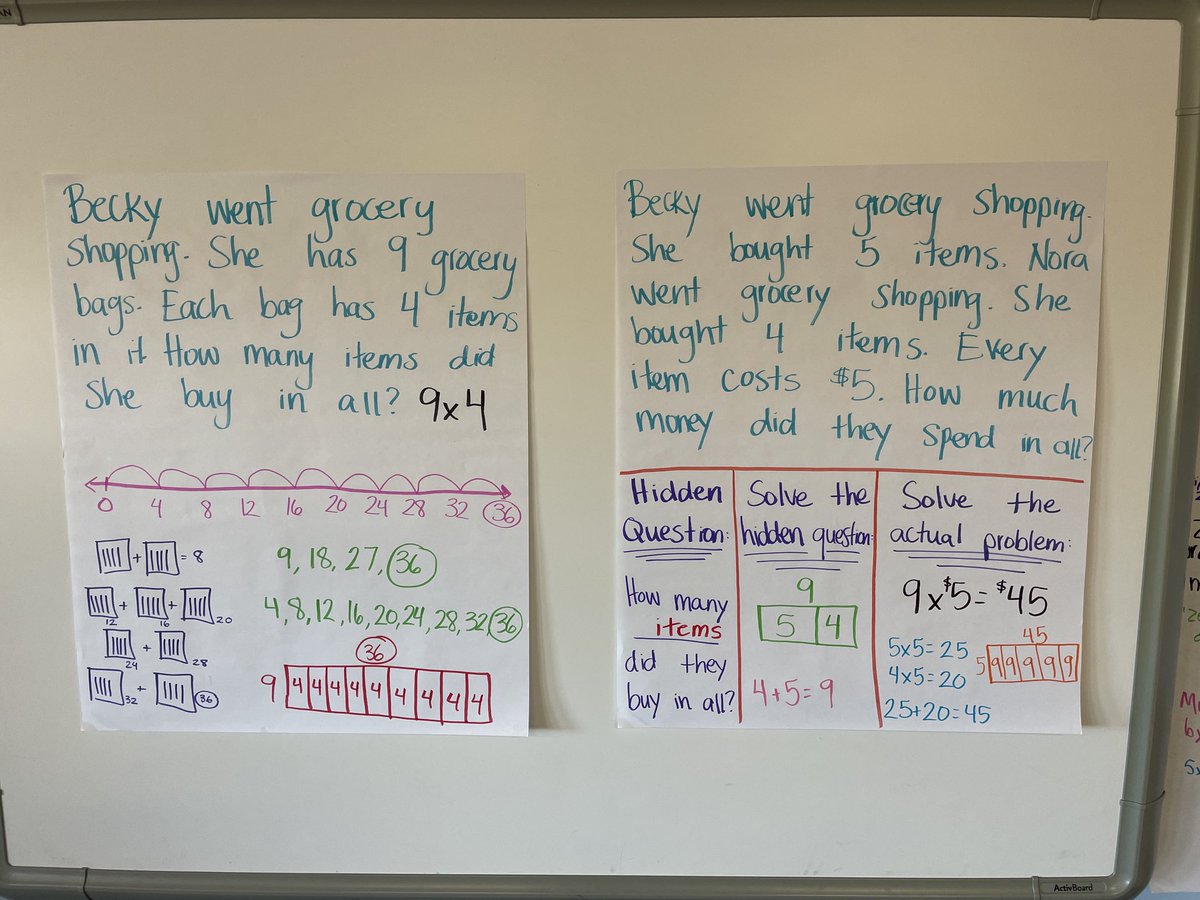 Becky went grocery
shopping. She has 9 grocery
bags. Each bag has 4 items
in it How many items did
She buy in all? 9x4
0 4 8 12 16 20 24 28 32 36
+ = 8
+ + 
12 16 20
+
24 28
+
32 36
9, 18, 27, 36
4, 8, 12, 16, 20, 24, 28, 32 36
36
9 4 4 4 4 4 4 4 4 4
Becky went grocery shopping.
She bought 5 items. Nora
went grocery shopping. She
bought 4 items. Every
item costs $5. How much
money did they spend in all?
Hidden
Question:
How many
items
did they
buy in all?
Solve the
hidden question:
9
5 4
4+5=9
Solve the
actual problem:
9x$5=$45
5x5=25
4x5=20
25+20=45
45
5 9 9 9 9 9
ActivBoard